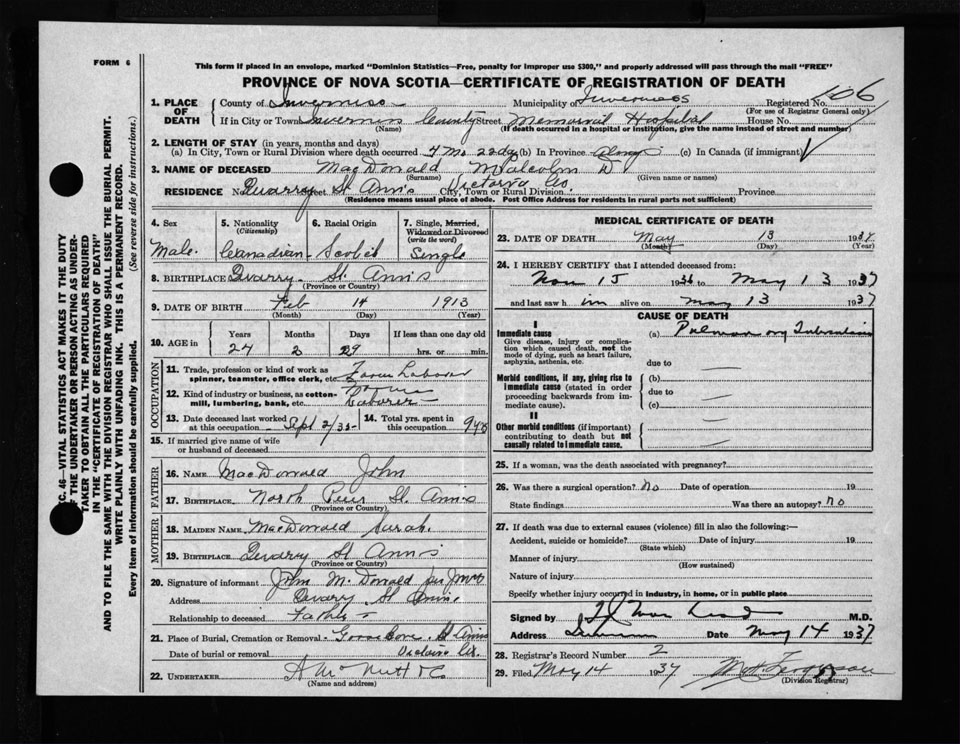 FORM 6
This form if placed in an envelope, marked "Dominion Statistics—Free, penalty for improper use $300," and properly addressed will pass through the mail "FREE"
PROVINCE OF NOVA SCOTIA—CERTIFICATE OF REGISTRATION OF DEATH
1. PLACE OF DEATH
County of Inverness Municipality of Inverness Registered No. 166
(For use of Registrar General only)
If in City or Town Inverness County Street Memorial Hospital House No.
(Name) (If death occurred in a hospital or institution, give the name instead of street and number)
2. LENGTH OF STAY (in years, months and days)
(a) In City, Town or Rural Division where death occurred 4 Mo 22 dys (b) In Province Always (c) In Canada (if immigrant)
3. NAME OF DECEASED MacDonald Malcolm D
(Surname) (Given name or names)
RESIDENCE No. Quarry Street St Ann's City, Town or Rural Division Victoria Co Province
(Residence means usual place of abode. Post Office Address for residents in rural parts not sufficient)
4. Sex
Male
5. Nationality (Citizenship)
Canadian
6. Racial Origin
Scotch
7. Single, Married, Widowed or Divorced (write the word)
Single
8. BIRTHPLACE Quarry St. Ann's
(Province or Country)
9. DATE OF BIRTH Feb 14 1913
(Month) (Day) (Year)
10. AGE in
Years Months Days If less than one day old
24 2 29 hrs. or min.
OCCUPATION
11. Trade, profession or kind of work as spinner, teamster, office clerk, etc. Farm Laborer
12. Kind of industry or business, as cotton-mill, lumbering, bank, etc. Farm Laborer
13. Date deceased last worked at this occupation Sept 2/35
14. Total yrs. spent in this occupation 9 yrs
15. If married give name of wife or husband of deceased
FATHER
16. NAME MacDonald John
17. BIRTHPLACE North River St. Anns
(Province or Country)
MOTHER
18. MAIDEN NAME MacDonald Sarah.
19. BIRTHPLACE Quarry St Ann's
(Province or Country)
20. Signature of informant John McDonald per
Address Quarry St Anns
Relationship to deceased Father
21. Place of Burial, Cremation or Removal Goose Cove. St Anns
Date of burial or removal Victoria Co.
22. UNDERTAKER A McNutt & Co
(Name and address)
MEDICAL CERTIFICATE OF DEATH
23. DATE OF DEATH May 13 1937
(Month) (Day) (Year)
24. I HEREBY CERTIFY that I attended deceased from:
Nov 15 1936 to May 13 1937
and last saw h im alive on May 13 1937
CAUSE OF DEATH
I
Immediate cause
Give disease, injury or complication which caused death, not the mode of dying, such as heart failure, asphyxia, asthenia, etc.
(a) Pulmonary Tuberculosis
due to
Morbid conditions, if any, giving rise to immediate cause (stated in order proceeding backwards from immediate cause).
(b)
due to
(c)
II
Other morbid conditions (if important) contributing to death but not causally related to immediate cause.
25. If a woman, was the death associated with pregnancy?
26. Was there a surgical operation? No Date of operation 19
State findings Was there an autopsy? No
27. If death was due to external causes (violence) fill in also the following:—
Accident, suicide or homicide? Date of injury 19
(State which)
Manner of injury
(How sustained)
Nature of injury
Specify whether injury occurred in industry, in home, or in public place
Signed by M.D.
Address Inverness Date May 14 1937
28. Registrar's Record Number 2
29. Filed May 14 1937 Ferguson
(Division Registrar)
C. 46—VITAL STATISTICS ACT MAKES IT THE DUTY
OF THE UNDERTAKER OR PERSON ACTING AS UNDERTAKER TO OBTAIN ALL THE PARTICULARS REQUIRED
IN THE "CERTIFICATE OF REGISTRATION OF DEATH"
AND TO FILE THE SAME WITH THE DIVISION REGISTRAR WHO SHALL ISSUE THE BURIAL PERMIT.
WRITE PLAINLY WITH UNFADING INK. THIS IS A PERMANENT RECORD.
Every item of information should be carefully supplied. (See reverse side for instructions.)